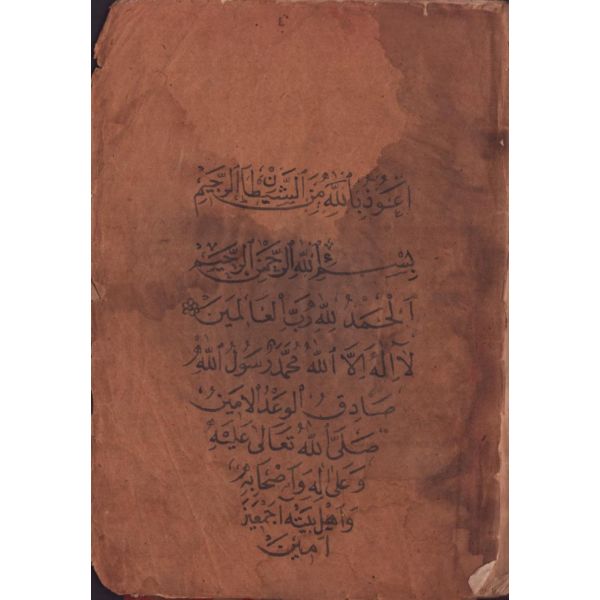 اَعُوذُ بِاللّٰهِ مِنَ الشَّيْطَانِ الرَّجِيمِ
بِسْمِ اللّٰهِ الرَّحْمٰنِ الرَّحِيمِ
اَلْحَمْدُ لِلّٰهِ رَبِّ الْعَالَمِينَ
لَا اِلٰهَ اِلَّا اللّٰهُ مُحَمَّدٌ رَسُولُ اللّٰهِ
صَادِقُ الْوَعْدِ الْاَمِينُ
صَلَّى اللّٰهُ تَعَالٰى عَلَيْهِ
وَعَلٰى اٰلِهِ وَاَصْحَابِهِ
وَاَهْلِ بَيْتِهِ اَجْمَعِينَ
اٰمِينَ